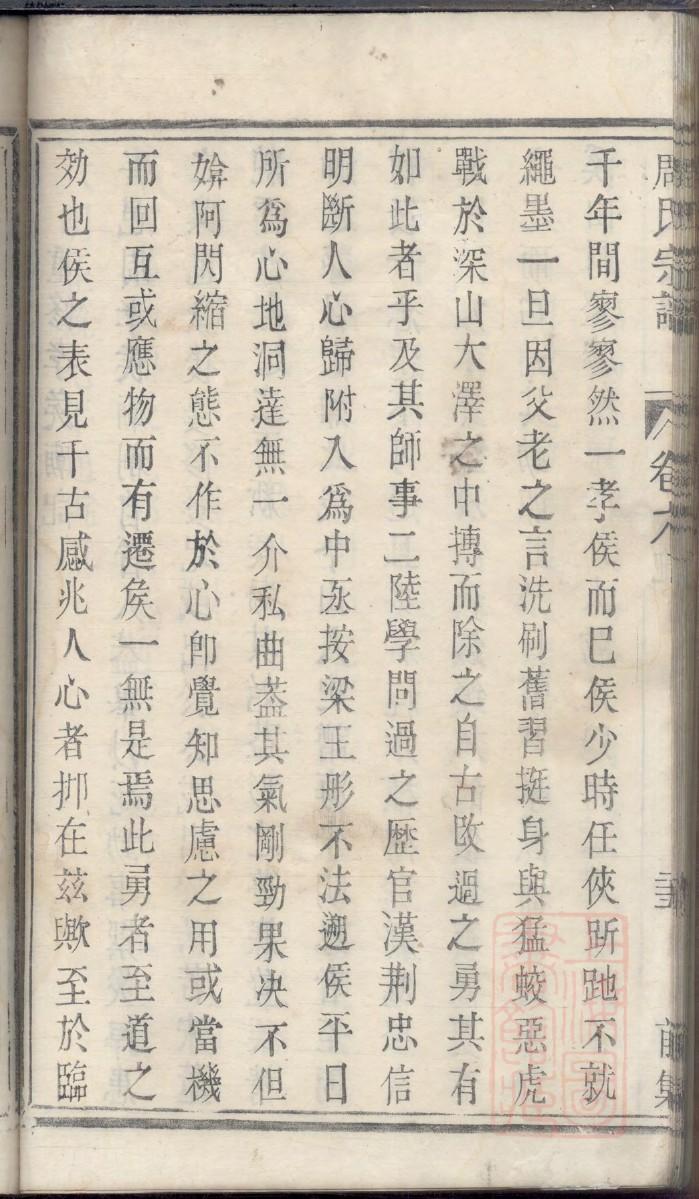 周氏宗譜 卷六 前集
千年間寥寥然一孝侯而已侯少時任俠跅跎不就
繩墨一旦因父老之言洗刷舊習挺身與猛蛟惡虎
戰於深山大澤之中摶而除之自古改過之勇其有
如此者乎及其師事二陸學問過之歷官漢荆忠信
明斷人心歸附入爲中丞按梁王彤不法遡侯平日
所爲心地洞達無一介私曲葢其氣剛勁果决不但
媕阿閃縮之態不作於心卽覺知思慮之用或當機
而回互或應物而有遷矦一無是焉此勇者至道之
効也侯之表見千古感兆人心者抑在茲歟至於臨